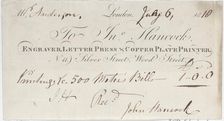 Mr. Anderson, London July 6, 1810
To Jno. Hancock,
Engraver, Letter Press & Copper Plate Printer,
Silver Street Wood Street
Printing 500 Bill 1-0-0
Recd.
John Hancock